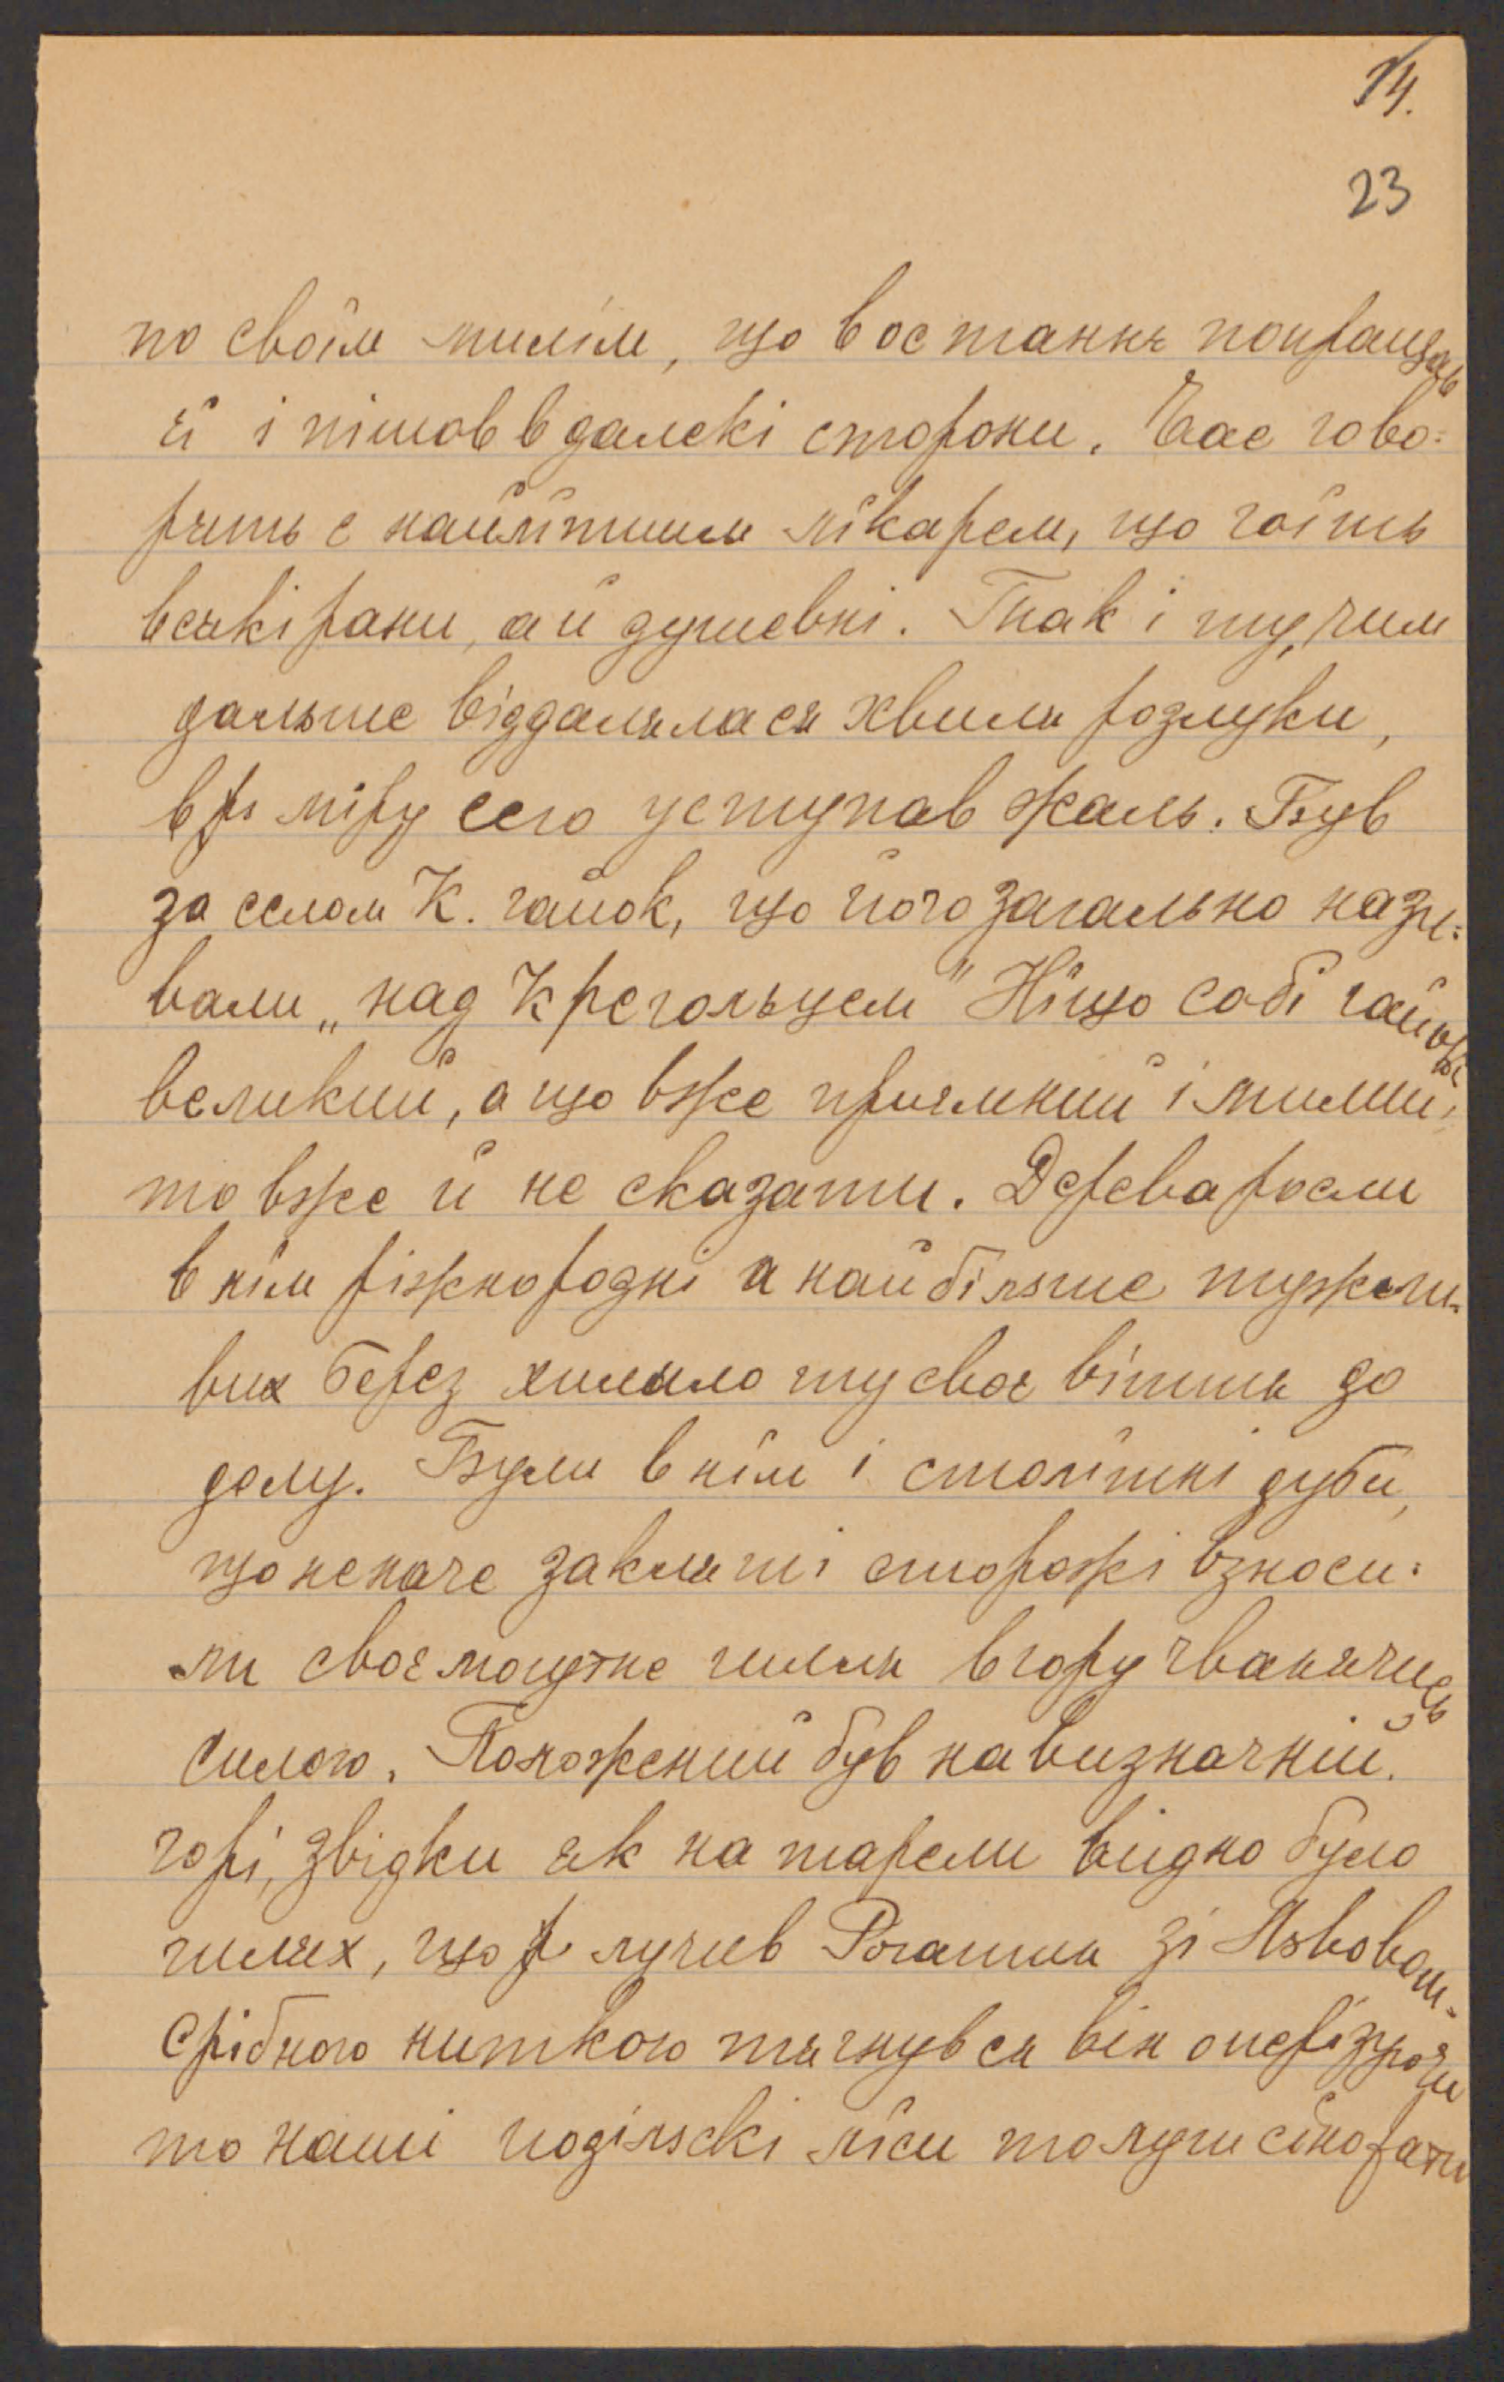 14.
23
по своїм милім, що востаннє попращав
єї і пішов в далекі сторони. Час гово=
рить є найліпшим лікарем, що гоїть
всякі рани, а й душевні. Так і ту, чим
дальше віддалялася хвиля розлуки,
в міру сего уступав жаль. Був
за селом К. гайок, що його загально нази=
вали „над Крегольцем" Ніщо собі гайок
великий, а що вже приємний і милий,
то вже й не сказати. Дерева росли
в нім ріжнородні а найбільше тужли=
вих берез хиляло ту своє віття до
долу. Були в нім і столітні дуби,
що неначе закляті сторожі взноси=
ли своє могутнє гилля вгору чванячись
силою. Положений був на визначній
горі, звідки як на тарели видно було
шлях, що лучив Рогатин зі Львовом.
Срібною ниткою тягнувся він
то наші подільскі ліси то луги